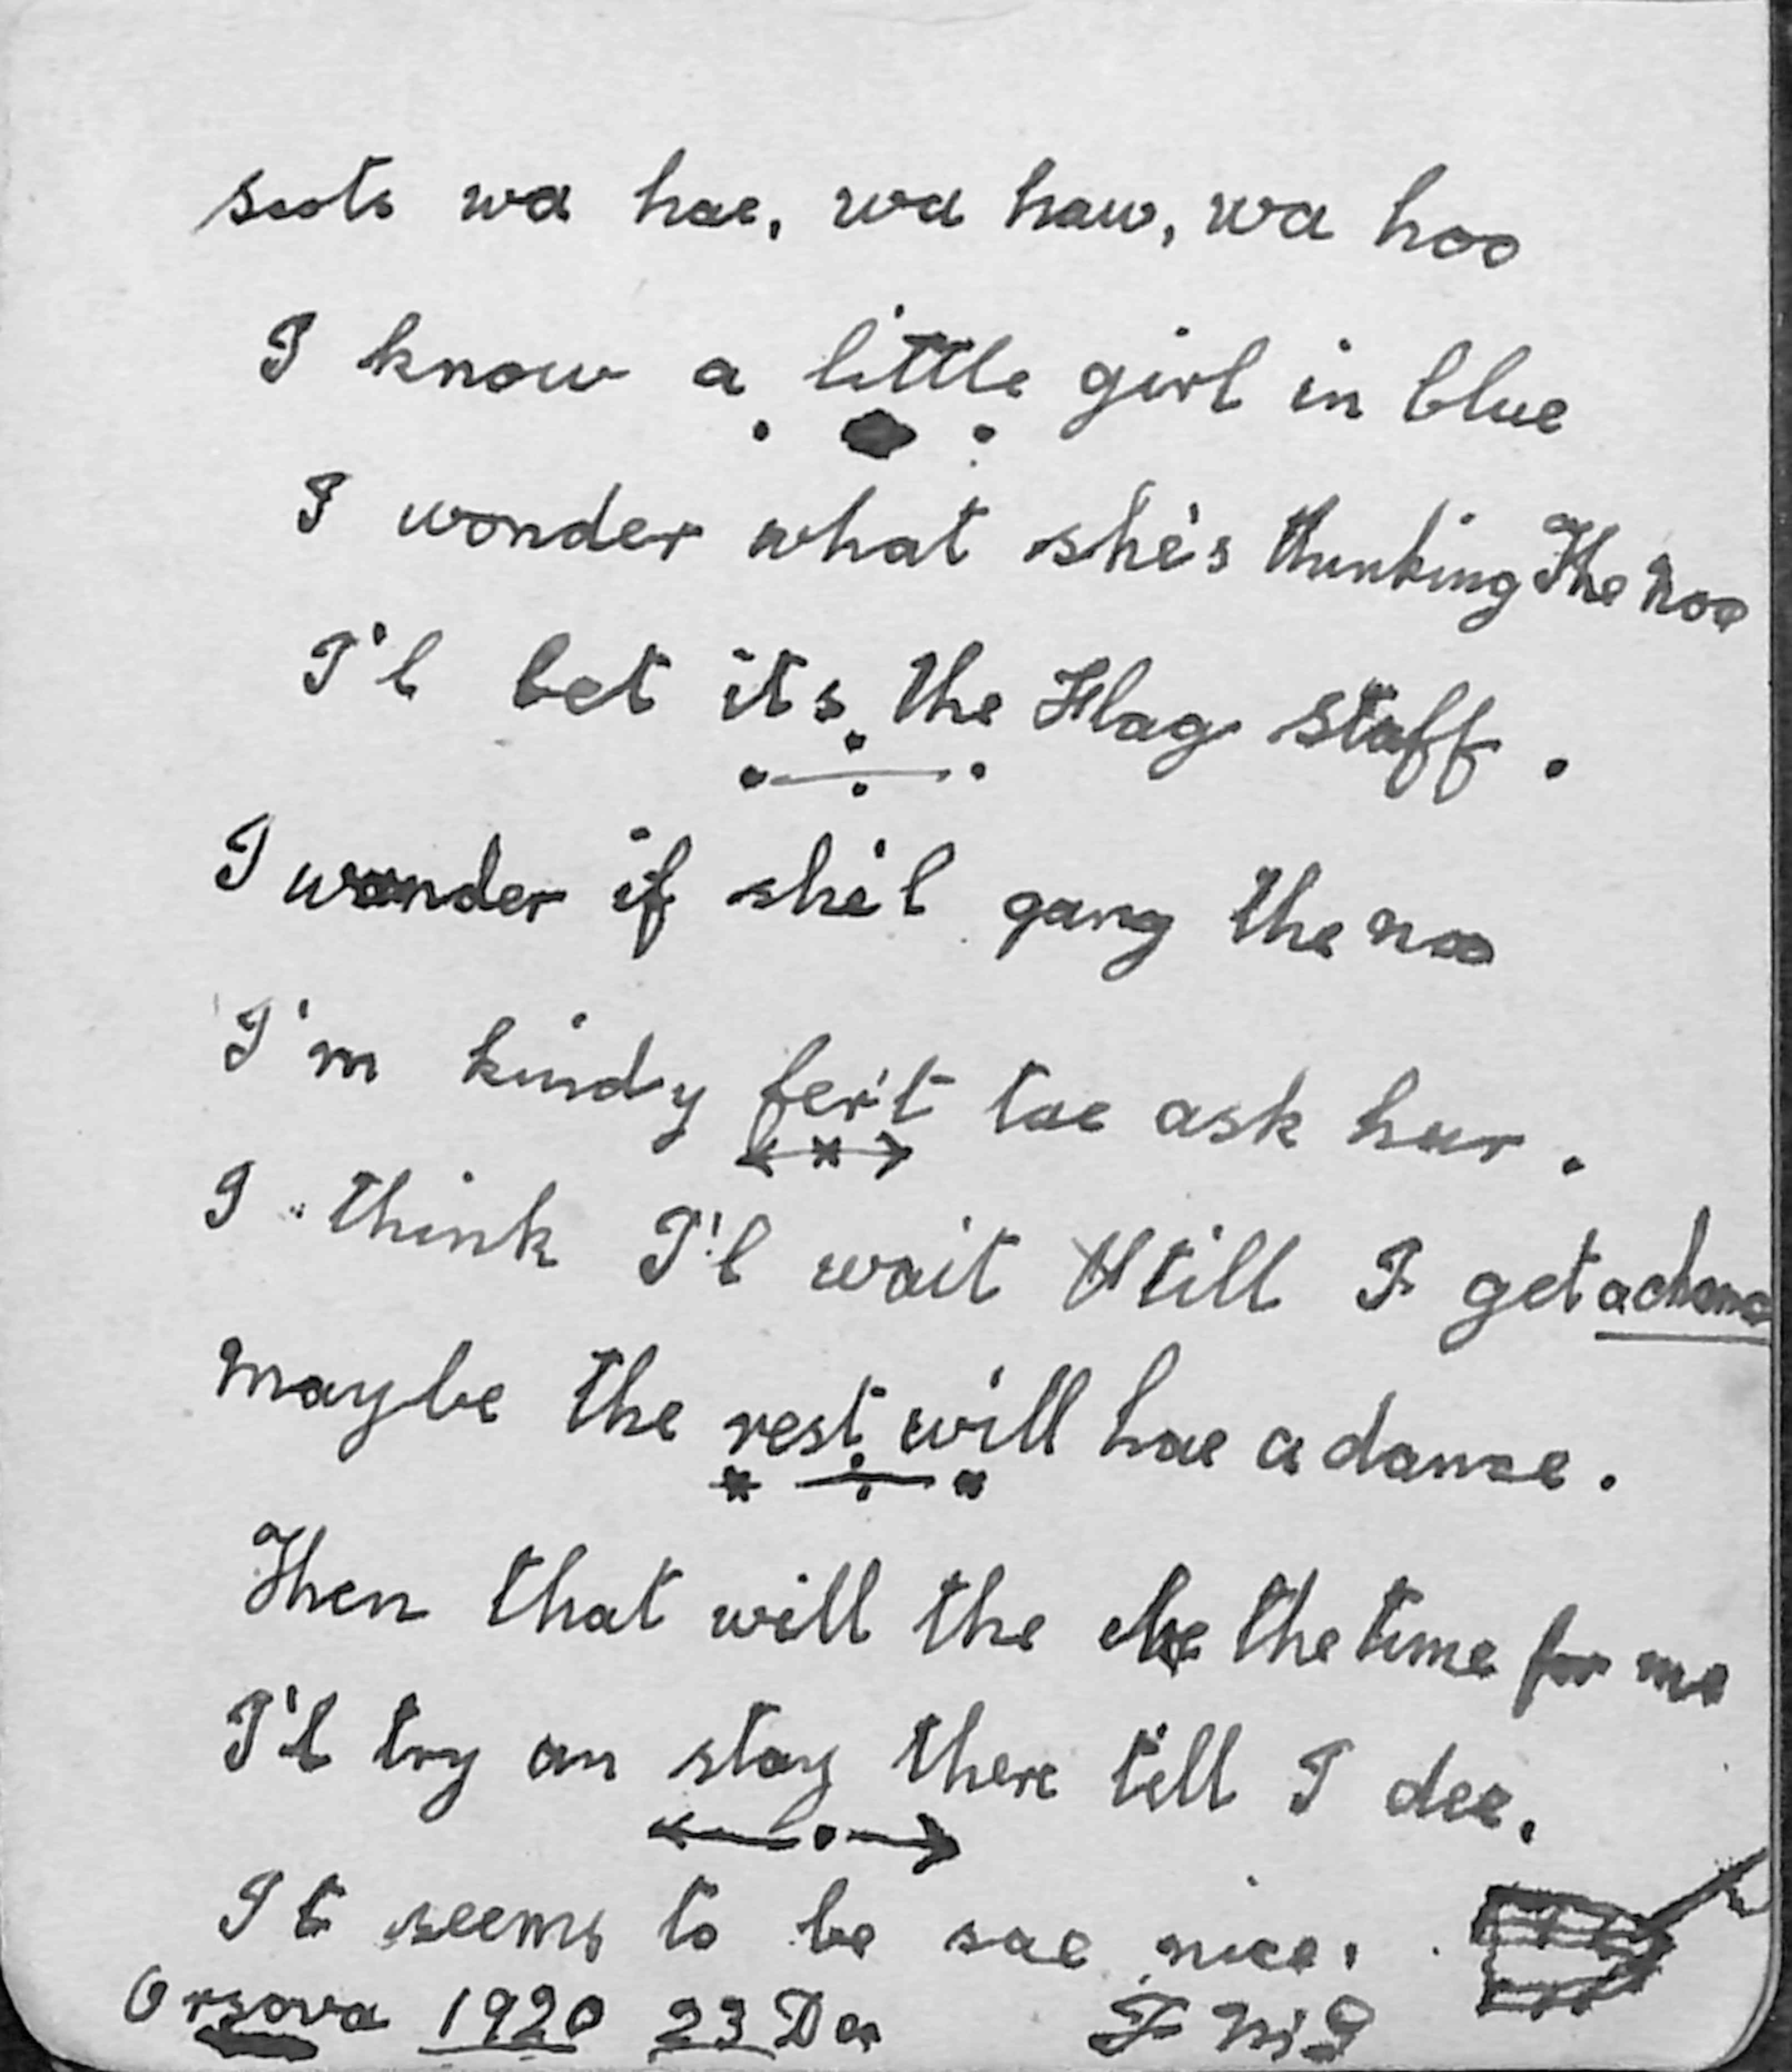 scots wa hae, wa haw, wa hoo
I know a little girl in blue
I wonder what she's thunking The noo
I'l bet its the Flag staff.
I wonder if she'l gang the noo
I'm kindy fer't tae ask hur.
I think I'l wait till I get a chance
maybe the rest will hae a dance.
Then that will the be the time for me
I'l try an stay there till I dee.
It seems to be sae nice.
Orsova 1920 23 Dec